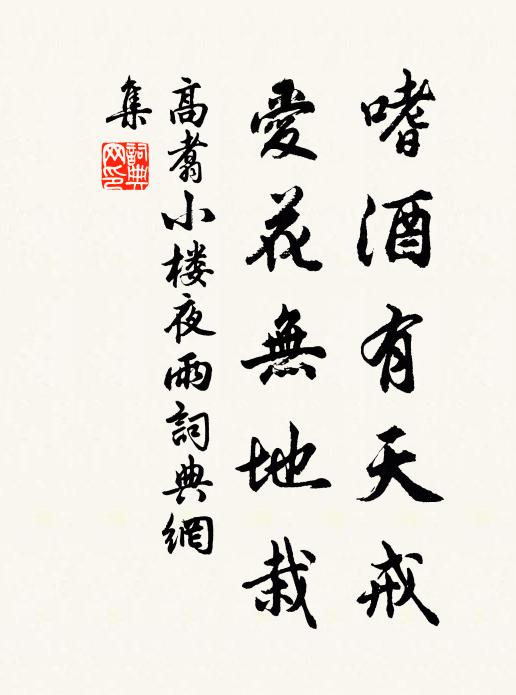 嗜酒有天戒
愛花無地栽
高翥小楼夜雨詞典網
集
詞典网印